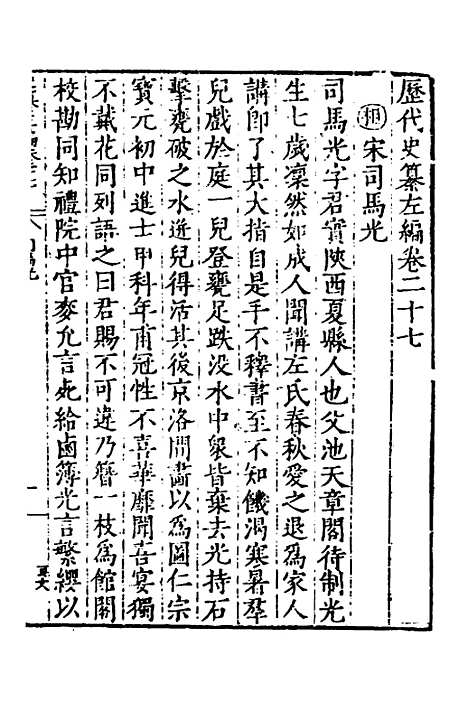 歷代史纂左編卷二十七
相 宋司馬光
司馬光字君實陝西夏縣人也父池天章閣待制光
生七歲凜然如成人聞講左氏春秋愛之退為家人
講即了其大指自是手不釋書至不知饑渴寒暑羣
兒戲於庭一兒登甕足跌没水中衆皆棄去光持石
擊甕破之水迸兒得活其後京洛間畵以為圖仁宗
寶元初中進士甲科年甫冠性不喜華靡聞喜宴獨
不戴花同列語之曰君賜不可違乃簪一枝為館閣
校勘同知禮院中官麥允言死給鹵簿光言繁纓以